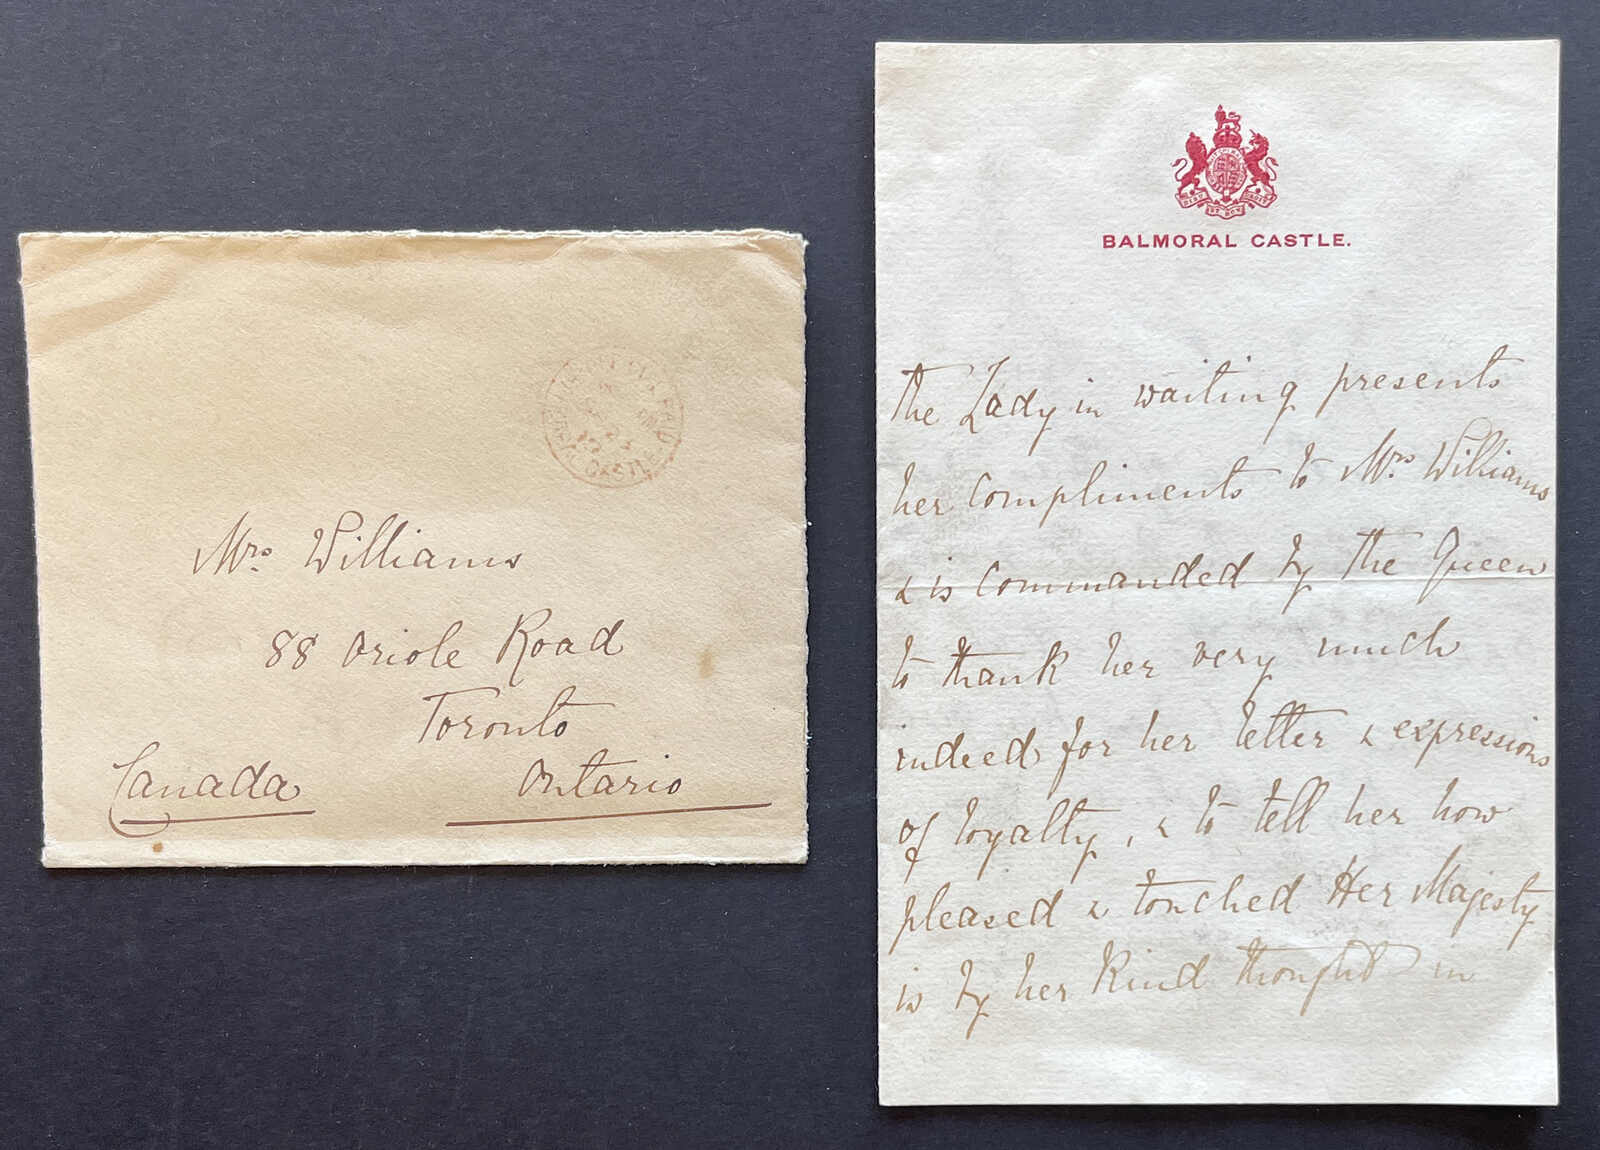 Mrs. Williams
88 Oriole Road
Toronto
Canada Ontario
PAID
CASTLE
DIEU ET MON DROIT
BALMORAL CASTLE.
The Lady in waiting presents
her compliments to Mrs. Williams
& is commanded by the Queen
to thank her very much
indeed for her letter & expressions
of loyalty, & to tell her how
pleased & touched Her Majesty
is by her kind thought in